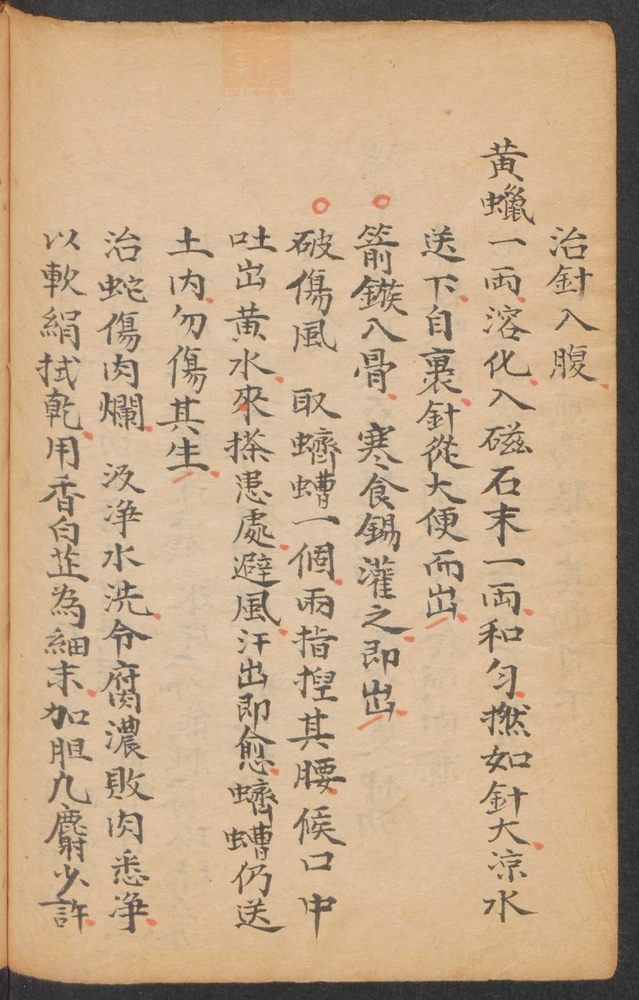 治針入腹
黄蠟一両溶化入磁石末一両和匀撚如針大凉水
送下自裹針從大便而出
箭鏃入骨 寒食錫灌之即出
破傷風 取蠐螬一個兩指捏其腰候口中
吐出黄水來搽患處避風汗出即愈蠐螬仍送
土内勿傷其生
治蛇傷肉爛 汲净水洗令腐濃敗肉悉净
以軟絹拭乾用香白芷為細末加胆九麝少許